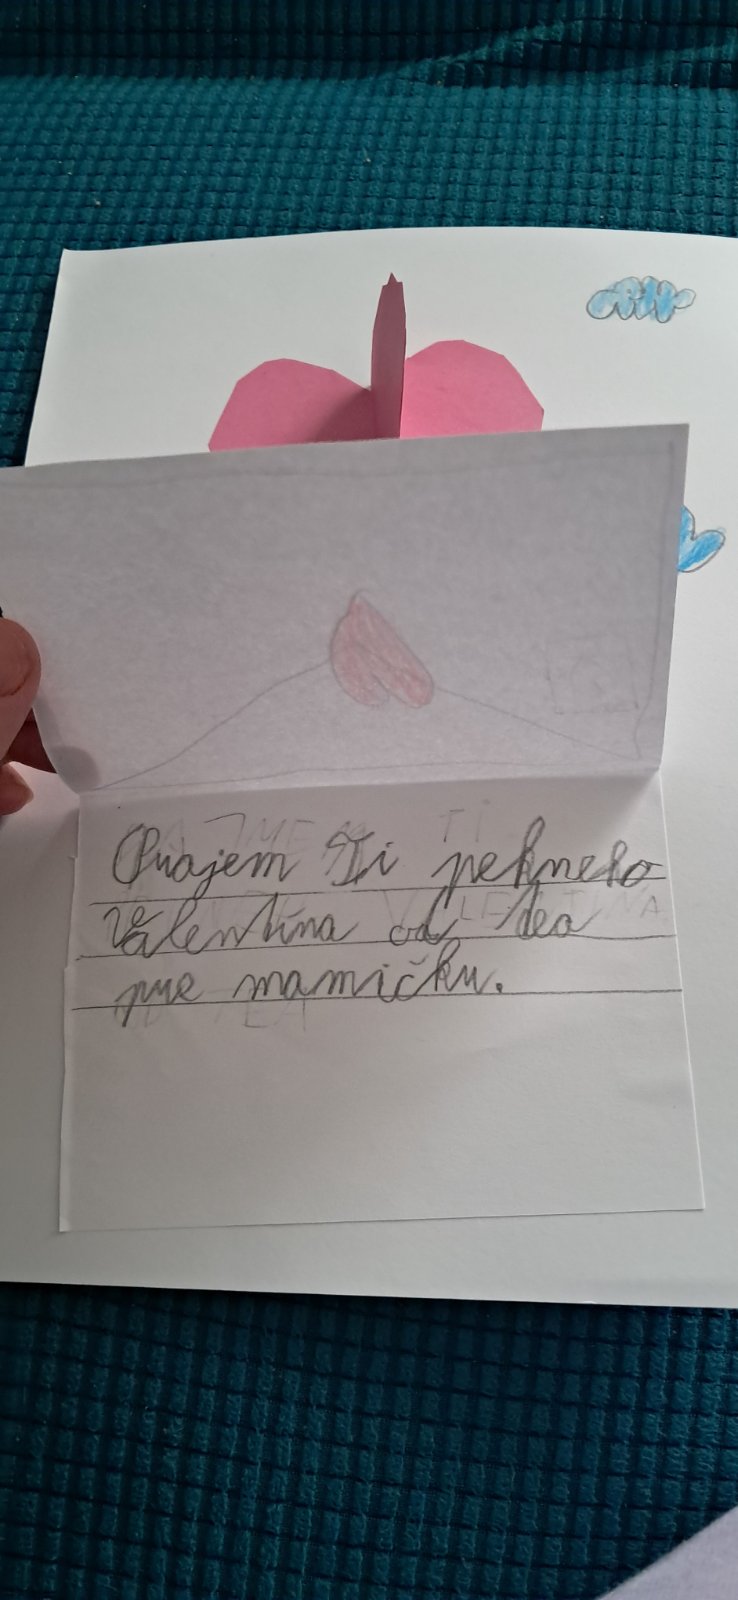 Prajem Ti pekneho
Valentína od tea
pre mamičku.